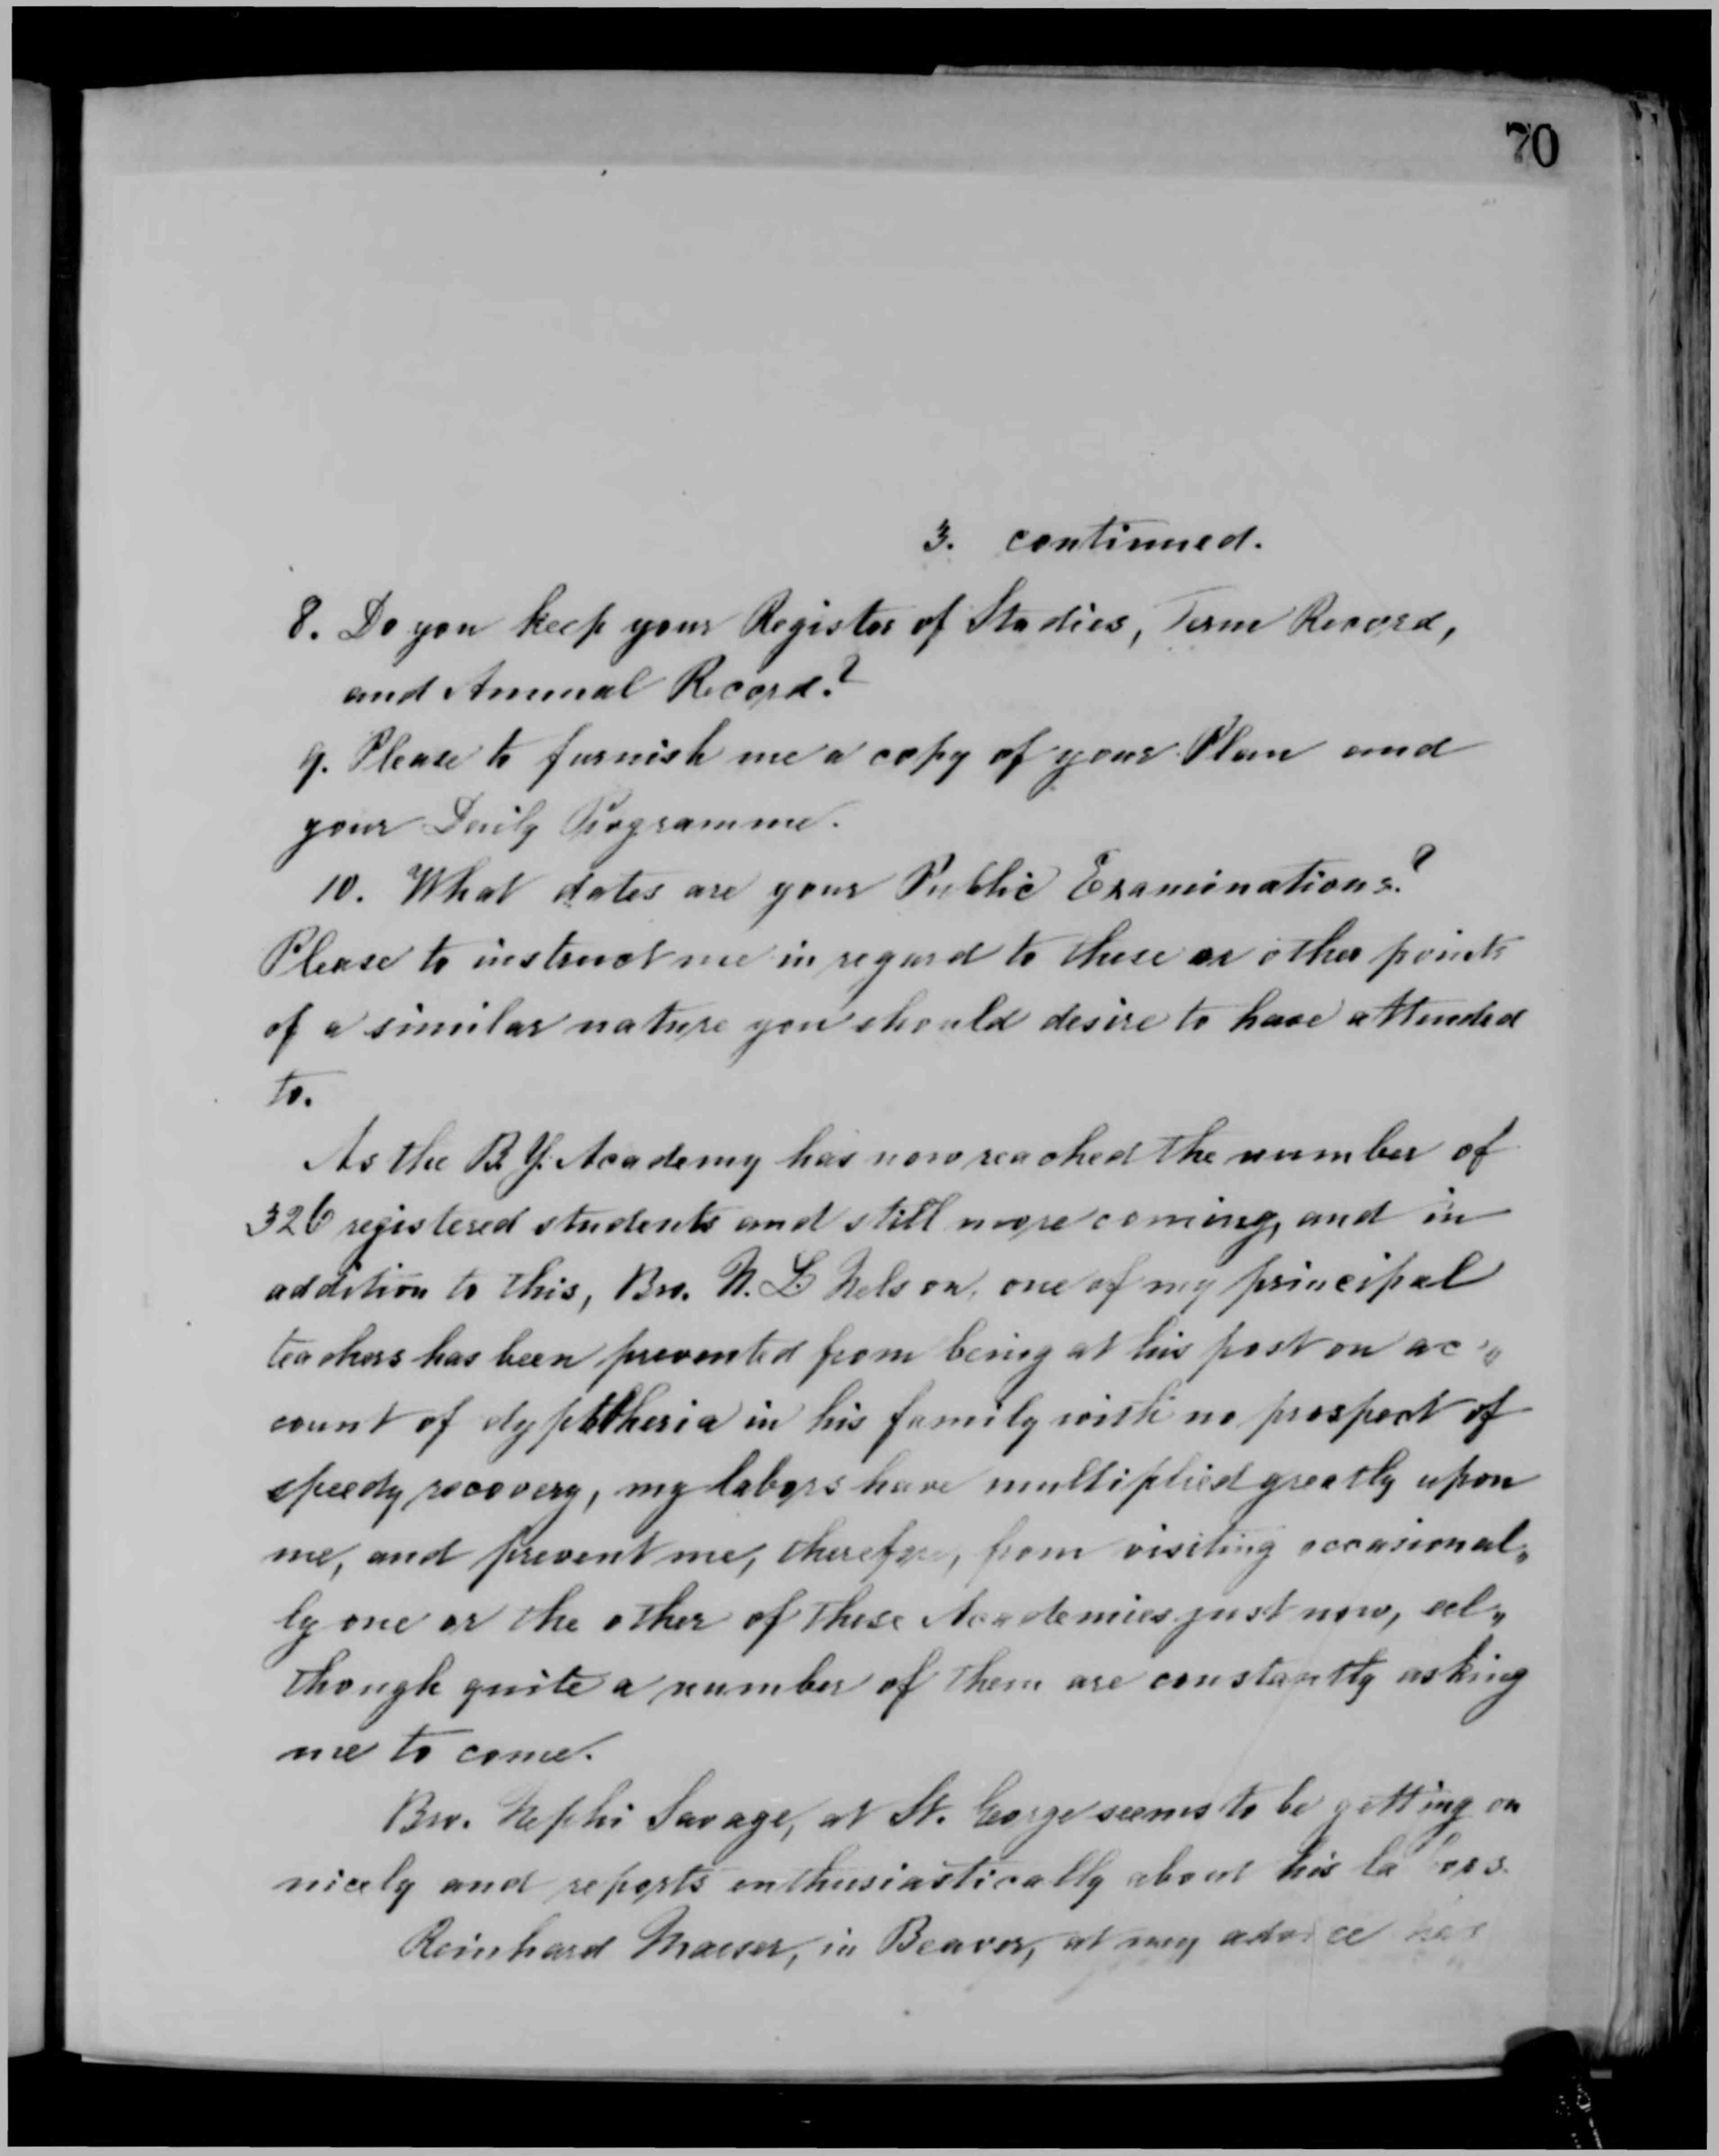 70
3. continued.
8. Do you keep your Register of Studies, Term Record,
and Annual Record?
9. Please to furnish me a copy of your Plan and
your Daily Programme.
10. What dates are your Public Examinations?
Please to instruct me in regard to these or other points
of a similar nature you should desire to have attended
to.
As the B. Y. Academy has now reached the number of
326 registered students and still more coming, and in
addition to this, Bro. N. L. Nelson, one of my principal
teachers has been prevented from being at his post on ac„
count of dyphtheria in his family with no prospect of
speedy recovery, my labors have multiplied greatly upon
me, and prevent me, therefore, from visiting occasional„
ly one or the other of these Academies just now, al„
though quite a number of them are constantly asking
me to come.
Bro. Nephi Savage, at St. George seems to be getting on
nicely and reports enthusiastically about his labors.
Reinhard Maeser, in Beaver, at my advice has